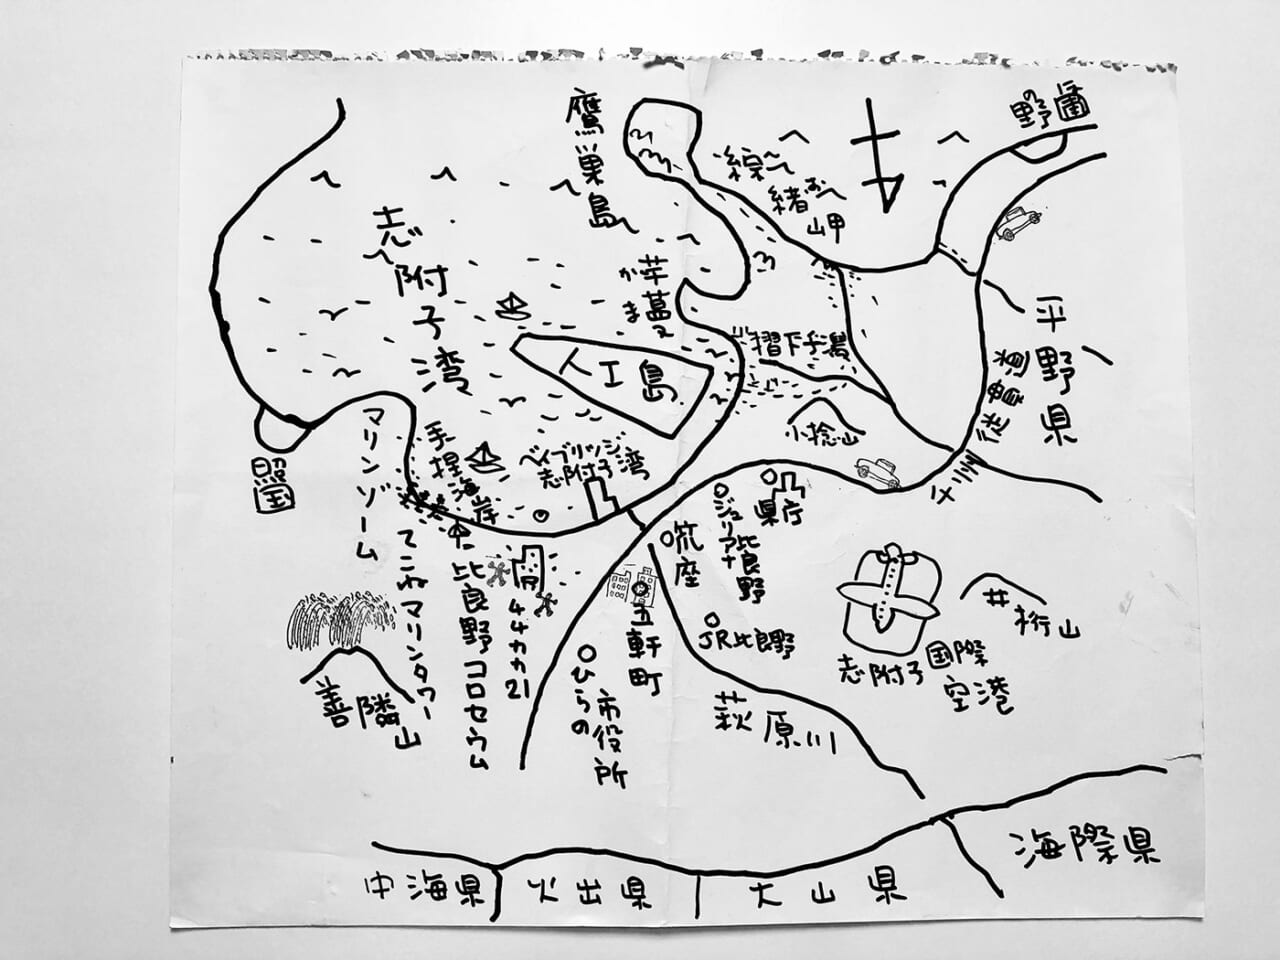 野圃
の
鷹巣島
綜緒岬
お
志附子湾
芋葛
かまえ
摺下手灘
人工島
平野県
従貫道
小捻山
マリンゾーム
手捏海岸
ベイブリッジ
志附子湾
照国
県庁
ジュリアナ比良野
吮座
てこねマリンタワー
比良野コロセウム
44カカ21
五軒町
JR比良野
井桁山
志附子国際空港
ひらの
市役所
善隣山
萩原川
海際県
中海県
火出県
大山県